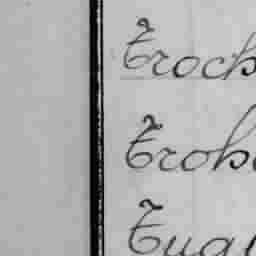 Troch
Trob
Tug